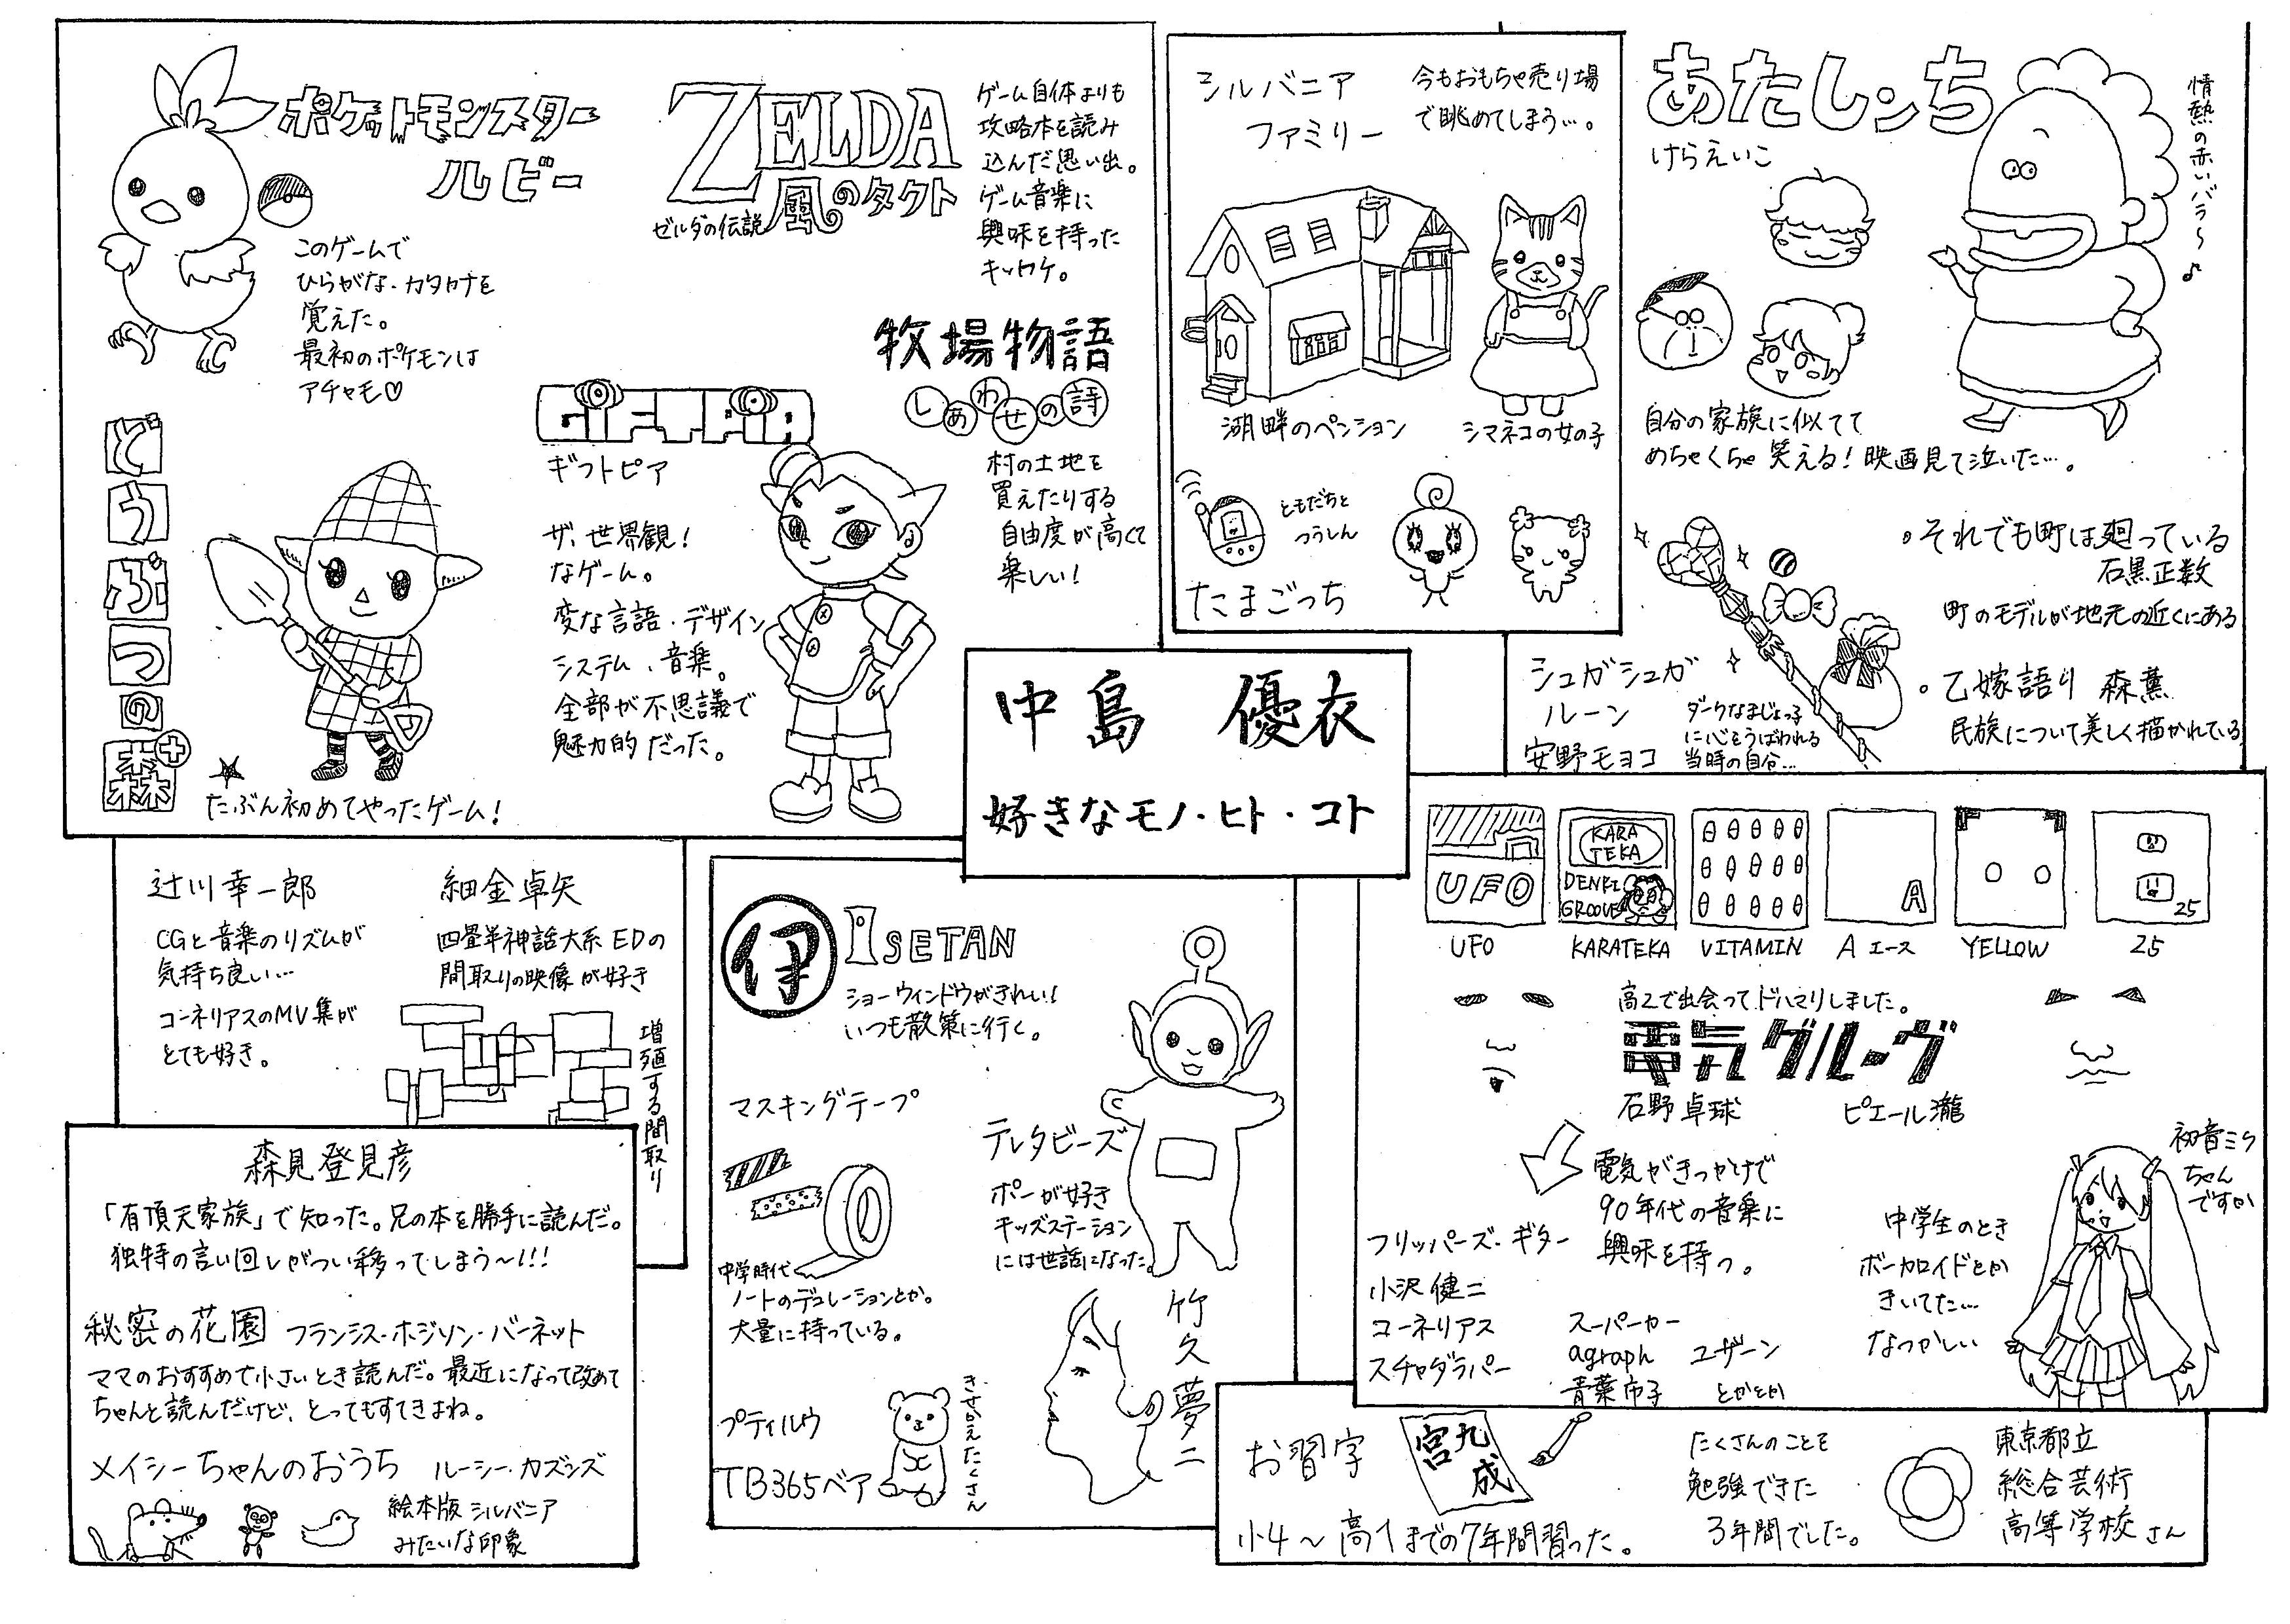 ポケットモンスター
ルビー
このゲームで
ひらがな・カタカナを
覚えた。
最初のポケモンは
アチャモ♡
ZELDA
ゼルダの伝説 風のタクト
ゲーム自体よりも
攻略本を読み
込んだ思い出。
ゲーム音楽に
興味を持った
キッカケ。
牧場物語
しあわせの詩
村の土地を
買えたりする
自由度が高くて
楽しい！
GIFTPIA
ギフトピア
ザ、世界観！
なゲーム。
変な言語・デザイン
システム、音楽。
全部が不思議で
魅力的だった。
どうぶつの森+
たぶん初めてやったゲーム！
シルバニア
ファミリー
今もおもちゃ売り場
で眺めてしまう…。
湖畔のペンション
シマネコの女の子
ともだちと
つうしん
たまごっち
あたしンち
けらえいこ
情熱の赤いバラ〜♪
自分の家族に似てて
めちゃくちゃ笑える！映画見て泣いた…。
・それでも町は廻っている
石黒正数
町のモデルが地元の近くにある
・乙嫁語り 森薫
民族について美しく描かれている
シュガシュガ
ルーン
安野モヨコ
ダークなまじょっ子
に心をうばわれる
当時の自分…
中島 優衣
好きなモノ・ヒト・コト
辻川幸一郎
CGと音楽のリズムが
気持ち良い…
コーネリアスのMV集が
とても好き。
細金卓矢
四畳半神話大系EDの
間取りの映像が好き
増殖する間取り
森見登見彦
「有頂天家族」で知った。兄の本を勝手に読んだ。
独特の言い回しがつい移ってしまう〜!!!
秘密の花園 フランシス・ホジソン・バーネット
ママのおすすめで小さいとき読んだ。最近になって改めて
ちゃんと読んだけど、とってもすてきよね。
メイシーちゃんのおうち ルーシー・カズンズ
絵本版シルバニア
みたいな印象
伊 ISETAN
ショーウィンドウがきれい！
いつも散策に行く。
マスキングテープ
中学時代
ノートのデコレーションとか。
大量に持っている。
テレタビーズ
ポーが好き
キッズステーション
には世話になった。
プティルウ
TB365ベア
きせかえたくさん
竹久夢二
UFO
KARA
TEKA
DENKI
GROOVE
A
25
UFO
KARATEKA
VITAMIN
A エース
YELLOW
25
高2で出会ってドハマりしました。
電気グルーヴ
石野卓球
ピエール瀧
電気がきっかけで
90年代の音楽に
興味を持つ。
フリッパーズ・ギター
小沢健二
コーネリアス
スチャダラパー
スーパーカー
agraph
青葉市子
ユザーン
とかとか
初音ミク
ちゃん
ですか
中学生のとき
ボーカロイドとか
きいてた…
なつかしい
お習字
九成
宮
小4〜高1までの7年間習った。
たくさんのことを
勉強できた
3年間でした。
東京都立
総合芸術
高等学校さん